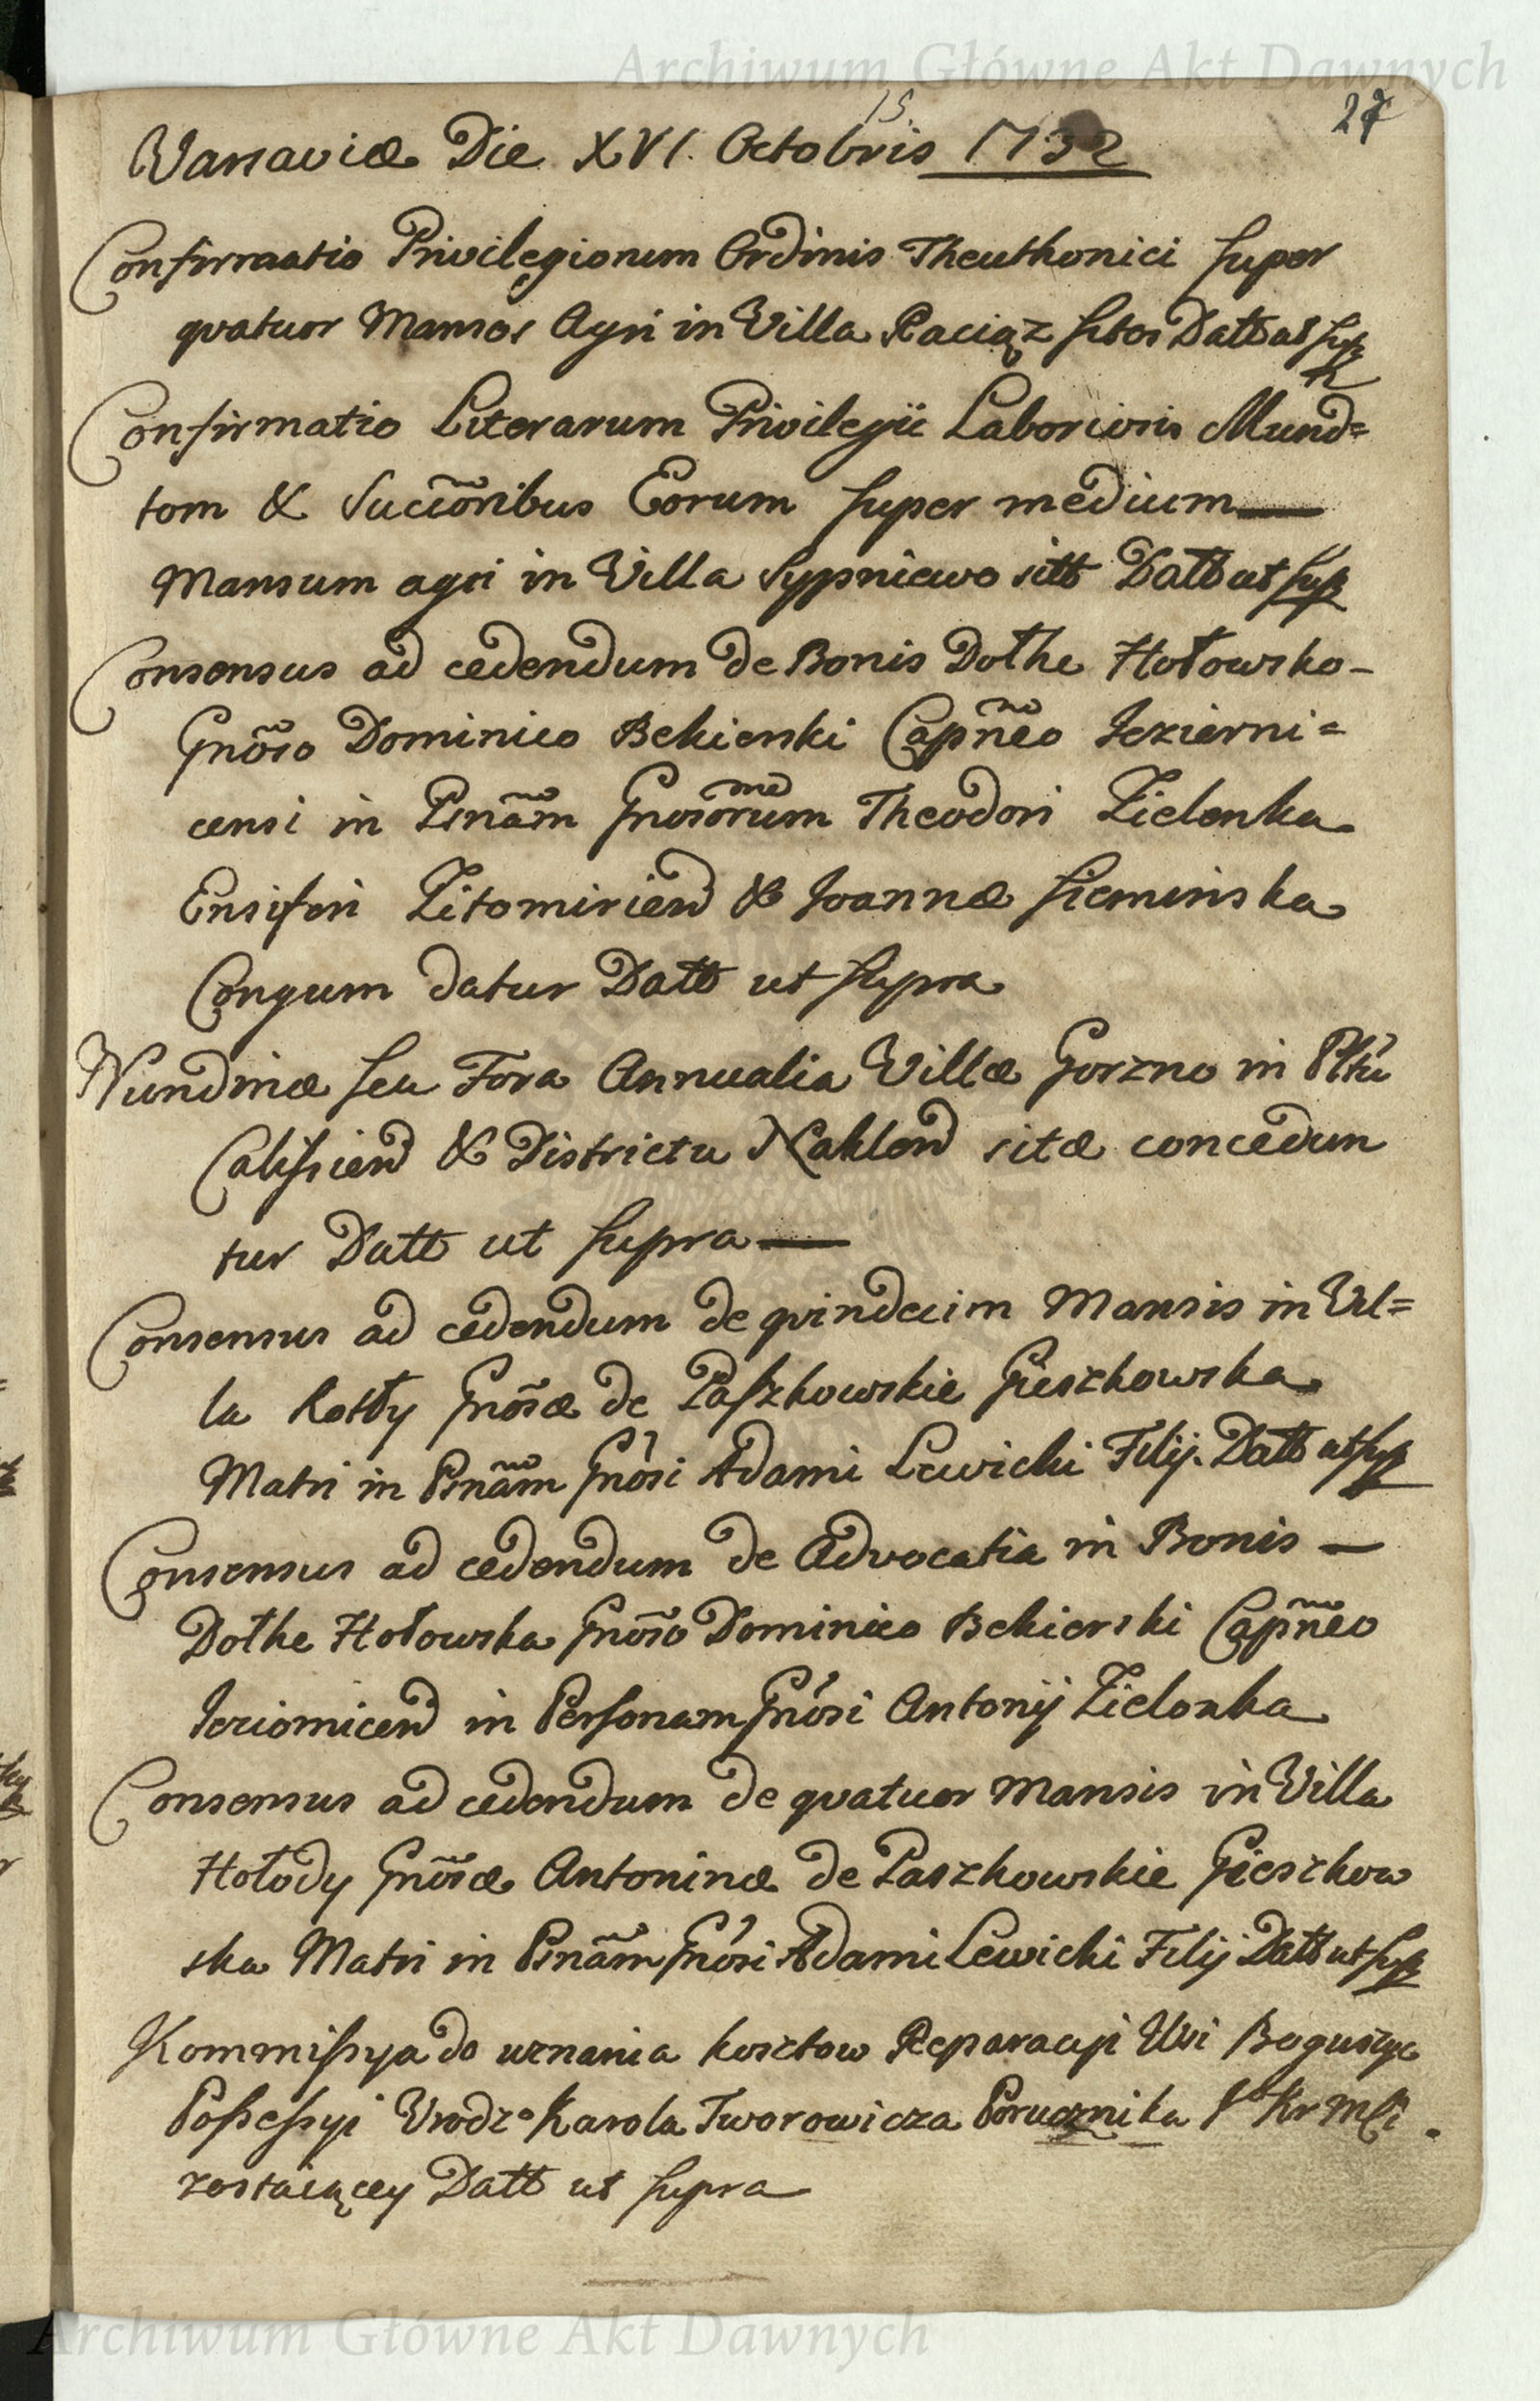 Archiwum Główne Akt Dawnych
15. 27
Warsaviæ Die XVI. Octobris 1732
Confirmatio Privilegiorum Ordinis Theuthonici super
qvatuor Mansos Agri in Villa Raciąz sitos Datt ut sup
Confirmatio Literarum Privilegii Laboriosis Mund=
tom & Succõribus Eorum super medium
Mansum agri in Villa Sypniewo sitt Datt ut sup
Consensus ad cedendum de Bonis Dothe Hołowsko-
Gnõso Dominico Bekierski Capñeo Jezierni=
censi in Psnãm Gnosõrum Theodori Zielonka
Ensiferi Zitomirien & Joannæ Siemińska
Congum datur Datt ut supra
Nundinæ seu Fora Annualia Villæ Gorzno in Pttu
Calissien & Districtu Naklen sitæ concedun
tur Datt ut supra
Consensus ad cedendum de qvindecim Mansis in Vil=
la Kotły Gnõsæ de Paszkowskie Gieszkowska
Matri in Psnãm Gnõsi Adami Lewicki Filij. Datt ut sup
Consensus ad cedendum de Advocatia in Bonis
Dothe Hołowska Gnõso Dominico Bekierski Capñeo
Jeziornicen in Personam Gnõsi Antonij Zielonka
Consensus ad cedendum de qvatuor Mansis in Villa
Hołody Gnõsæ Antoninæ de Paszkowskie Gieszkow
ska Matri in Psnãm Gnõsi Adami Lewicki Filij Datt ut sup
Kommissya do uznania kosztow Reparacyi Wsi Boguszyc
Possessyi Urodzo Karola Tworowicza Porucznika J Kr Mści
zostaiącey Datt ut supra
Archiwum Główne Akt Dawnych